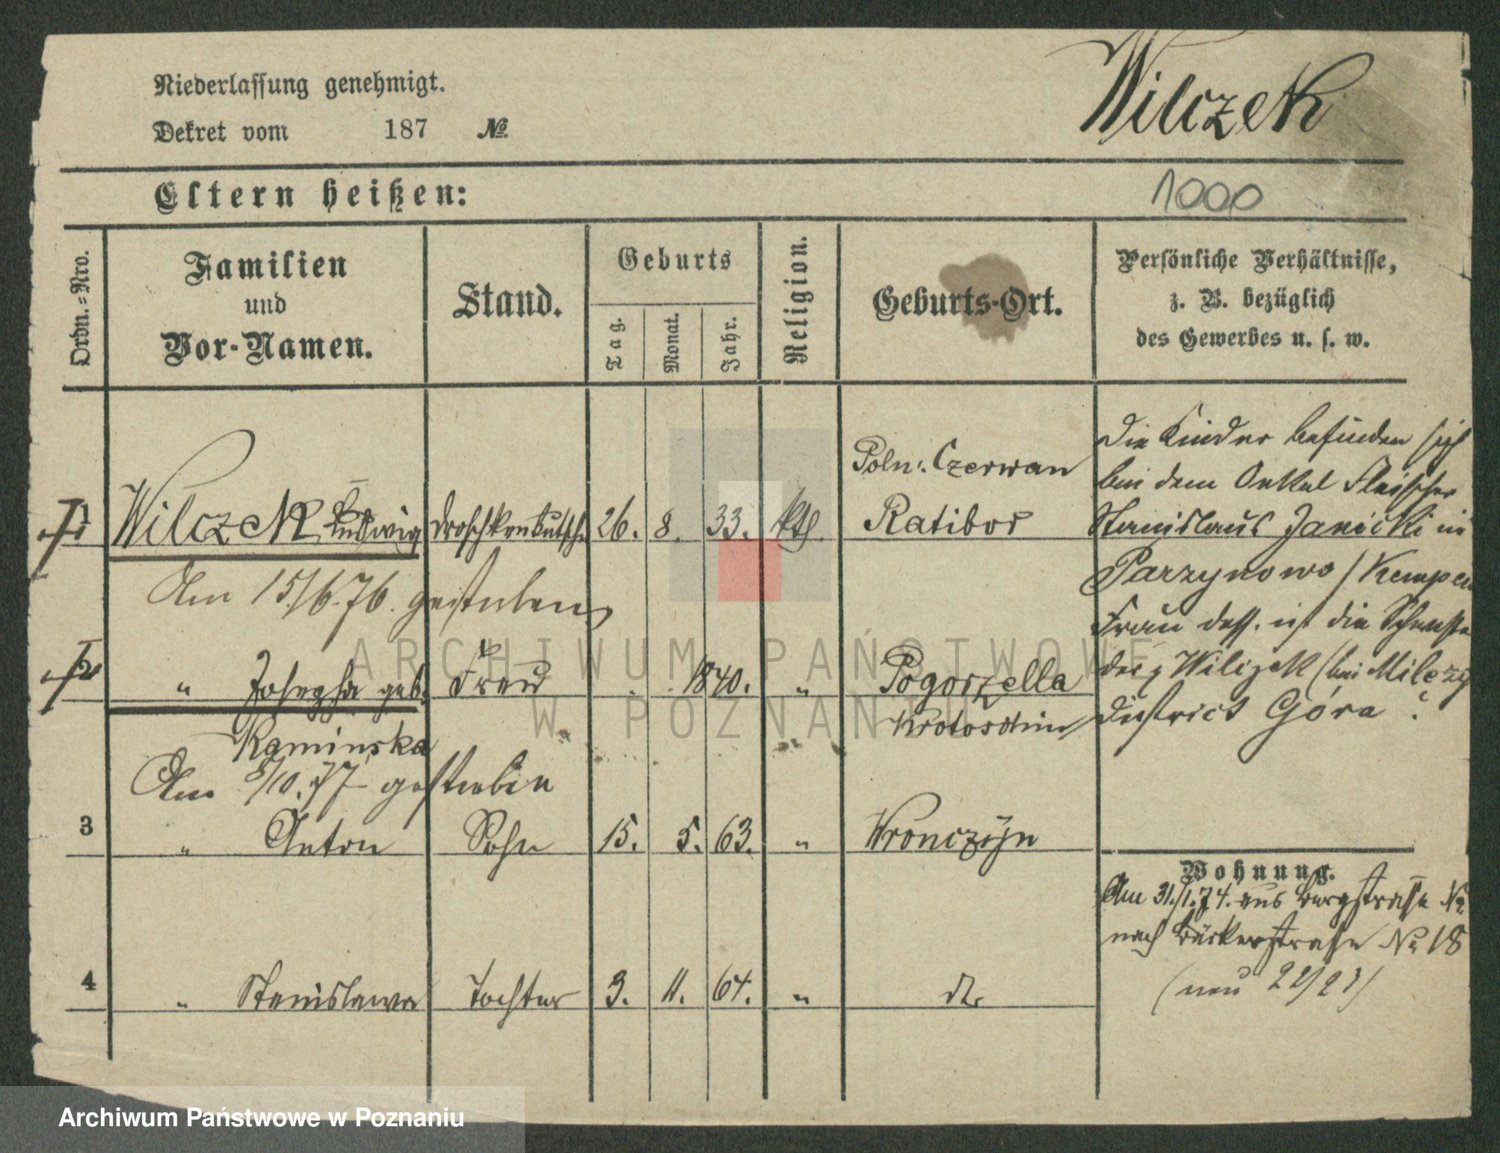 Niederlassung genehmigt.
Dekret vom 187 №
Wilczek
Eltern heißen:
1000
Ordn.-Nro.
Familien
und
Vor-Namen.
Stand.
Geburts
Tag.
Monat.
Jahr.
Religion.
Geburts-Ort.
Persönliche Verhältnisse,
z. B. bezüglich
des Gewerbes u. s. w.
1 Wilczek Ludwig Droschkenkutscher 26. 8. 33. kth.
Poln: Czerwan
Ratibor
Am 15/6.76. gestorben
2 " Josepha geb. Frau 1840. "
Kaminska
Pogorzella
Krotoschin
Am 5/10.77 gestorben
3 " Anton Sohn 15. 5. 63. " Wronczyn
4 " Stanislawa Tochter 3. 11. 64. " do
Die Kinder befinden sich
bei dem Onkel Fleischer
Stanislaus Janicki in
Parzynowo / Kempen
Frau dess. ist die Schweste
der Wilczek (bei
District Góra ?
Wohnung.
Am 31./1.74. aus Bergstraße №
nach Bäckerstraße № 18
(neu 22/23)
ARCHIWUM PAŃSTWOWE
W POZNANIU
Archiwum Państwowe w Poznaniu